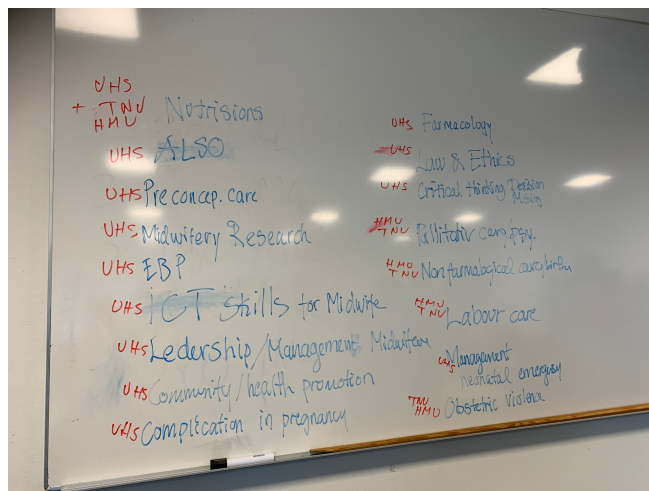 UHS
+ TNU Nutrisions
HMU
UHS ALSO
UHS Preconcep. care
UHS Midwifery Research
UHS EBP
UHS ICT Skills for Midwife
UHS Ledership/Management Midwifery
UHS Community/health promotion
UHS Complication in pregnancy
UHS Farmacology
UHS
Law & Ethics
UHS Critical thinking/Decision
Making
HMU
TNU Pallitativ care/psy.
HMU
TNU Nonfarmalogical care/birth
HMU
TNU Labour care
UHS Management
neonatal emergency
TNU
HMU Obstetric violence